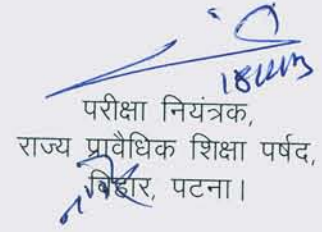 परीक्षा नियंत्रक,
राज्य प्रावैधिक शिक्षा पर्षद,
बिहार, पटना।